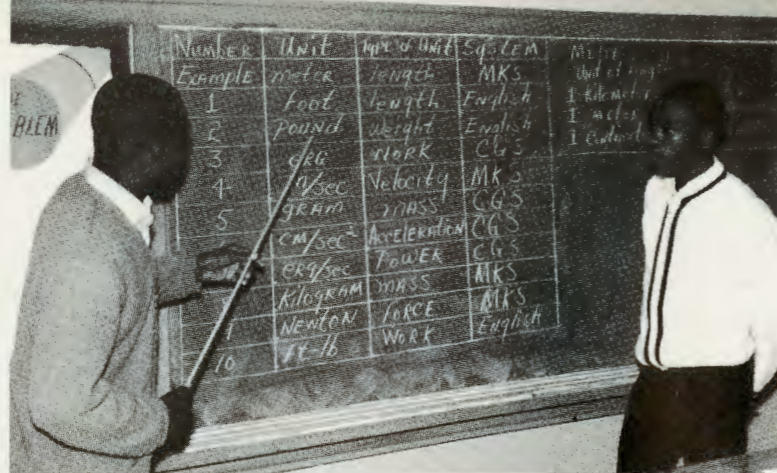 BLEM
Number Unit Type of Unit System
Example meter length MKS
1 Foot length English
2 Pound weight English
3 erg Work CGS
4 /sec Velocity MKS
5 gram mass CGS
cm/sec² Acceleration CGS
erg/sec Power CGS
Kilogram mass MKS
Newton Force MKS
10 ft-lb Work English
Unit of
1 Kilomet
1 meter
1 Centimet